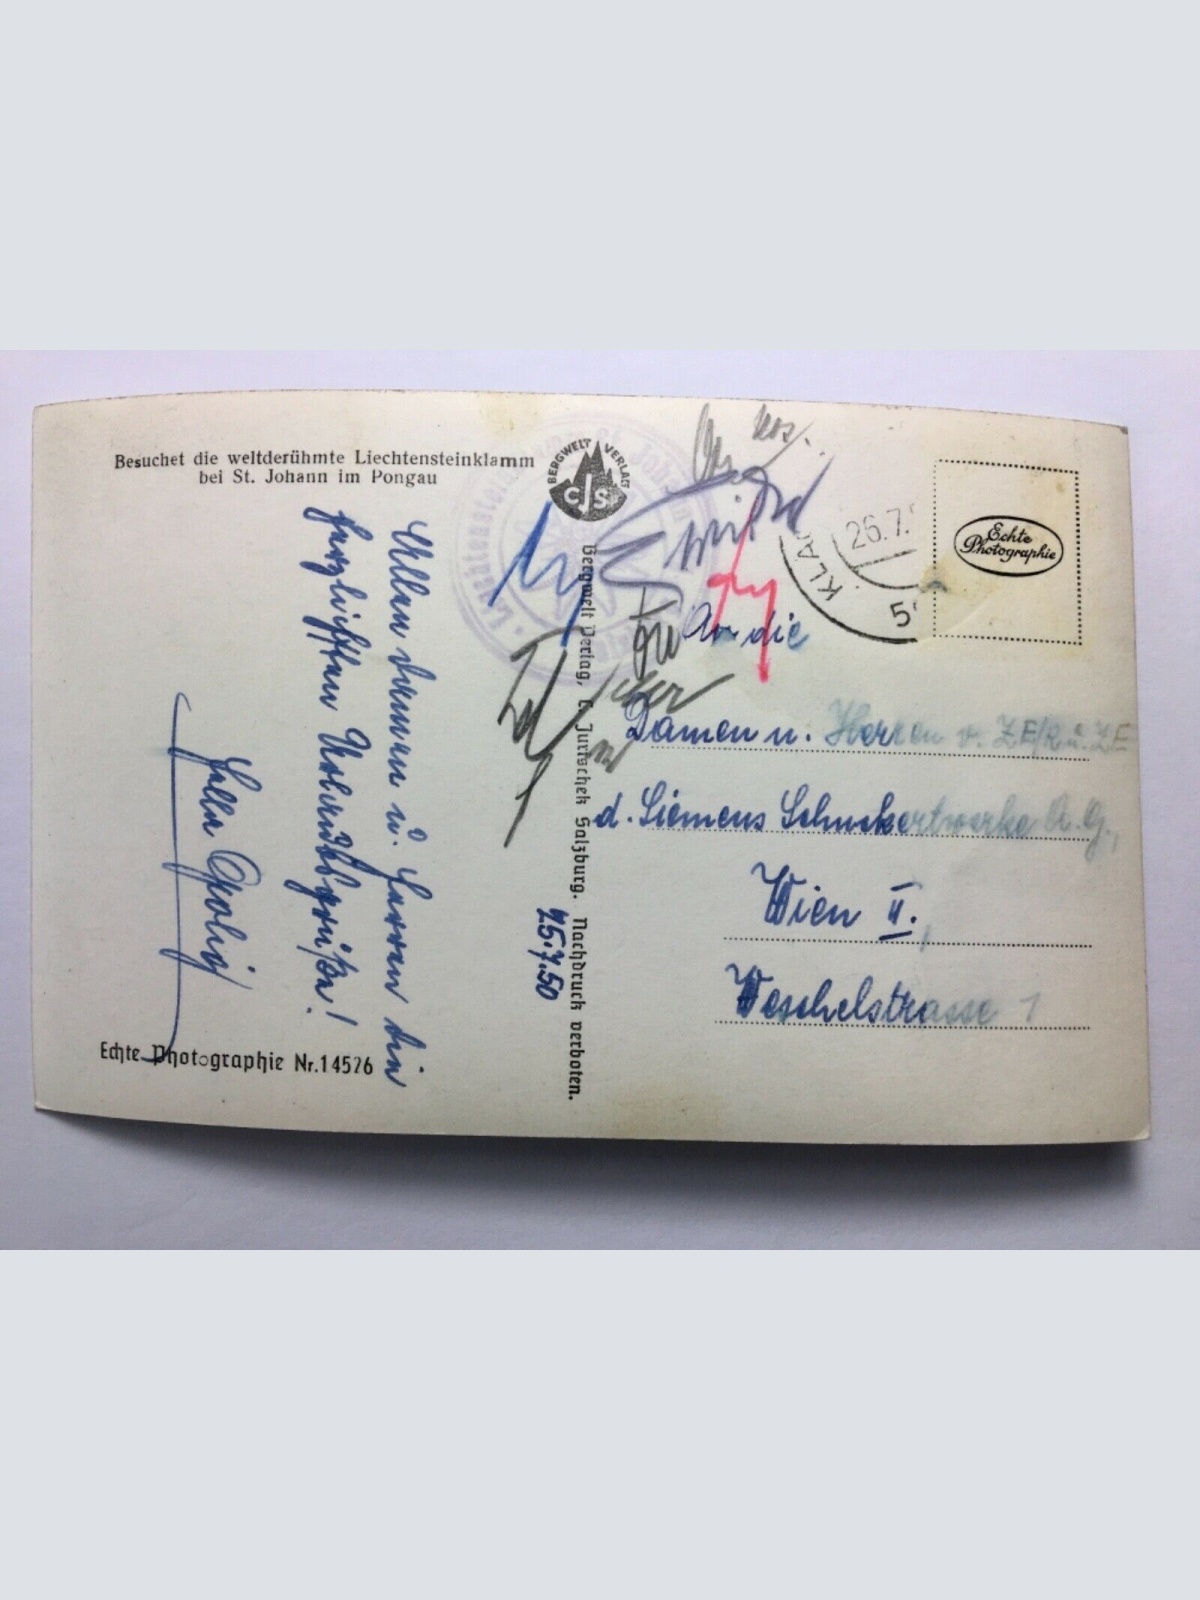 Besuchet die weltderühmte Liechtensteinklamm
bei St. Johann im Pongau
BERGWELT VERLAG
CJS
Allen Damen u. Herren die
herzlichsten Urlaubsgrüße!
25.7.50
Echte Photographie Nr. 14526
Bergwelt Verlag, C. Jurischek Salzburg. Nachdruck verboten.
KLA
26.7.
5
Echte
Photographie
An die
Damen u. Herren v. ZE/R u. ZE
d. Siemens Schuckertwerke A.G.,
Wien II.,
Weschelstrasse 1